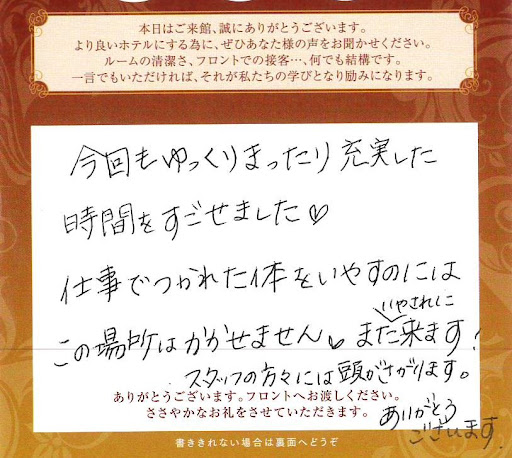 本日はご来館、誠にありがとうございます。
より良いホテルにする為に、ぜひあなた様の声をお聞かせください。
ルームの清潔さ、フロントでの接客…、何でも結構です。
一言でもいただければ、それが私たちの学びとなり励みになります。
今回もゆっくりまったり充実した
時間をすごせました♡
仕事でつかれた体をいやすのには
この場所はかかせません♥また来ます!
いやされに
スタッフの方々には頭がさがります。
ありがとうございます。フロントへお渡しください。
ささやかなお礼をさせていただきます。
ありがとう
ございます
書ききれない場合は裏面へどうぞ